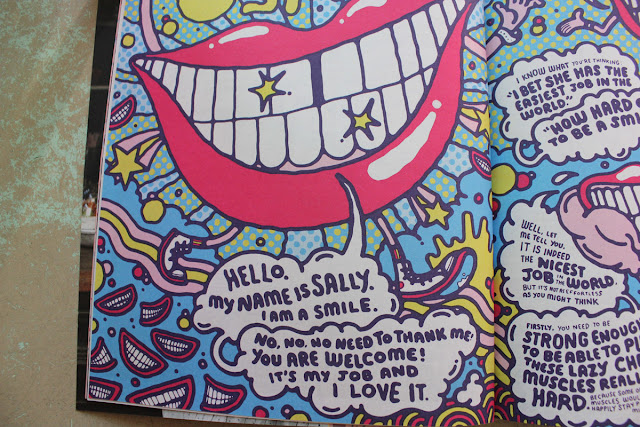 HELLO.
MY NAME IS SALLY.
I AM A SMILE.
NO, NO, NO NEED TO THANK ME!
YOU ARE WELCOME!
IT'S MY JOB AND
I LOVE IT.
I KNOW WHAT YOU'RE THINKING
"I BET SHE HAS THE
EASIEST JOB IN THE
WORLD."
"HOW HARD
TO BE A
WELL, LET
ME TELL YOU.
IT IS INDEED
THE NICEST
JOB IN THE WORLD.
BUT IT'S NOT AS EFFORTLESS
AS YOU MIGHT THINK
FIRSTLY, YOU NEED TO BE
STRONG ENOUGH
TO BE ABLE TO
THESE LAZY
MUSCLES
HARD.
BECAUSE SOME
MUSCLES WOULD
HAPPILY STAY